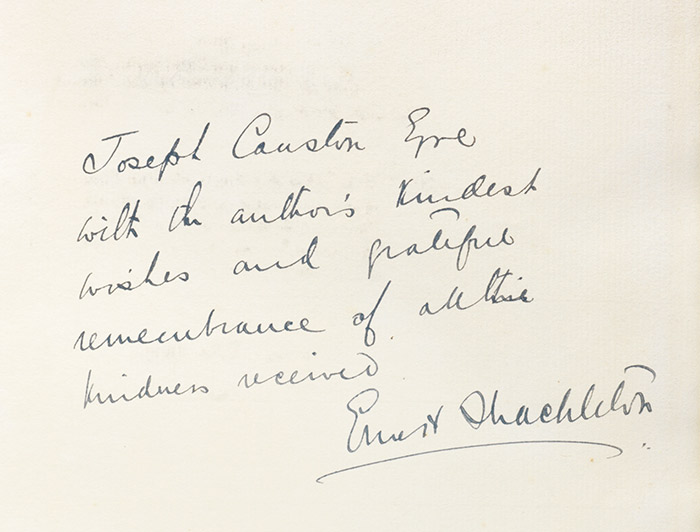 Joseph Causton Eyre
with the author's kindest
wishes and grateful
remembrance of all the
kindness received
Ernest Shackleton